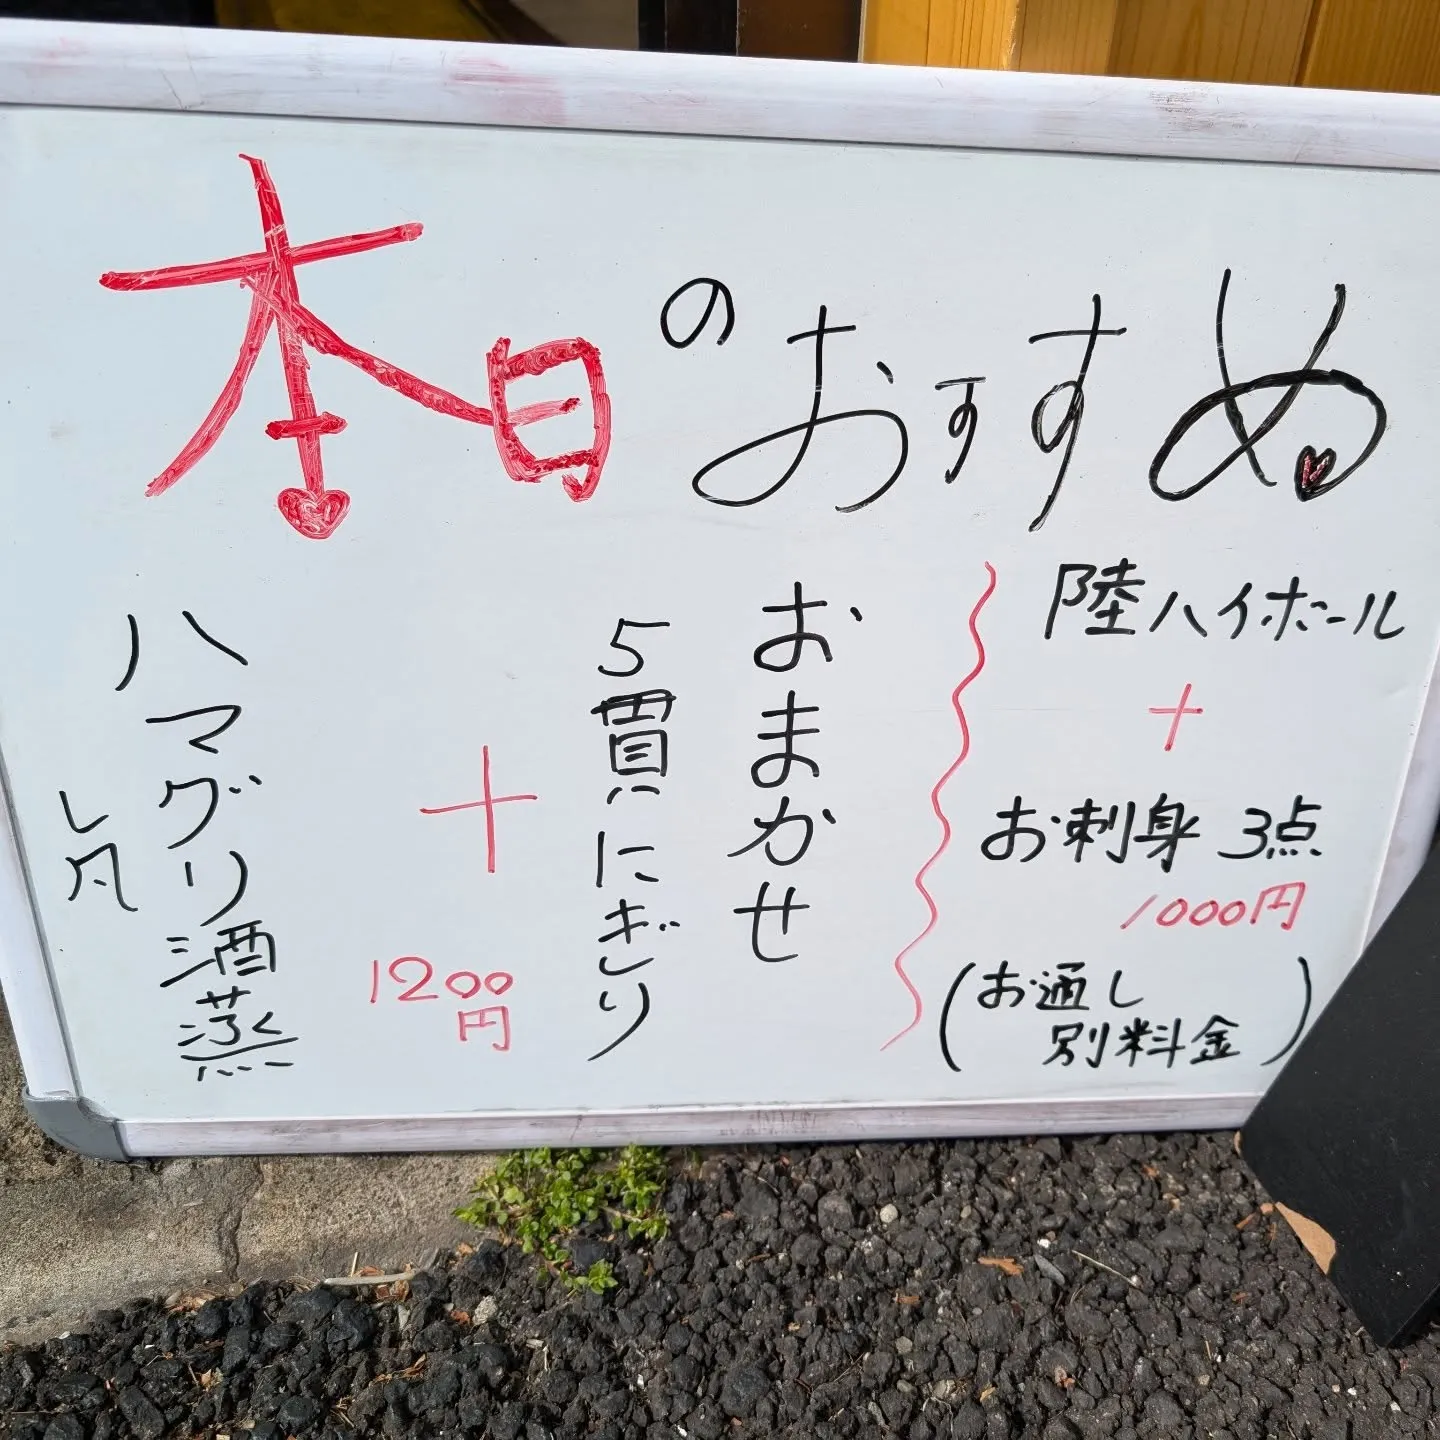 本日のおすすめ
陸ハイボール
+
お刺身 3点
1000円
(お通し
別料金)
おまかせ
5貫にぎり
+
1200
円
ハマグリ酒蒸